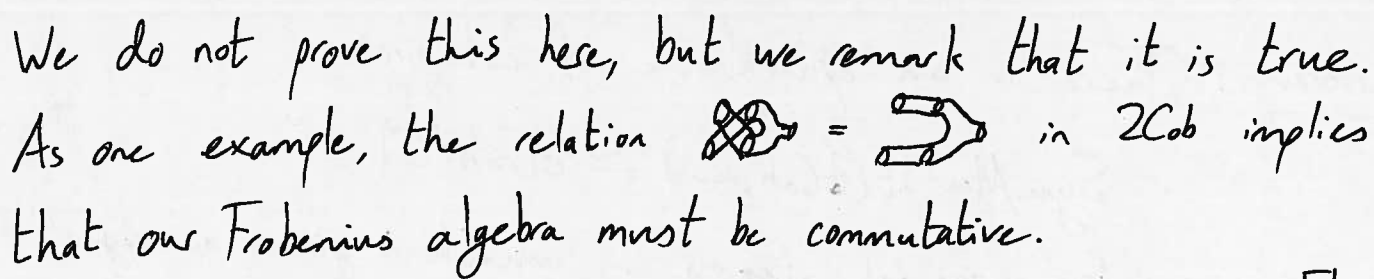 We do not prove this here, but we remark that it is true.
As one example, the relation = in 2Cob implies
that our Frobenius algebra must be commutative.